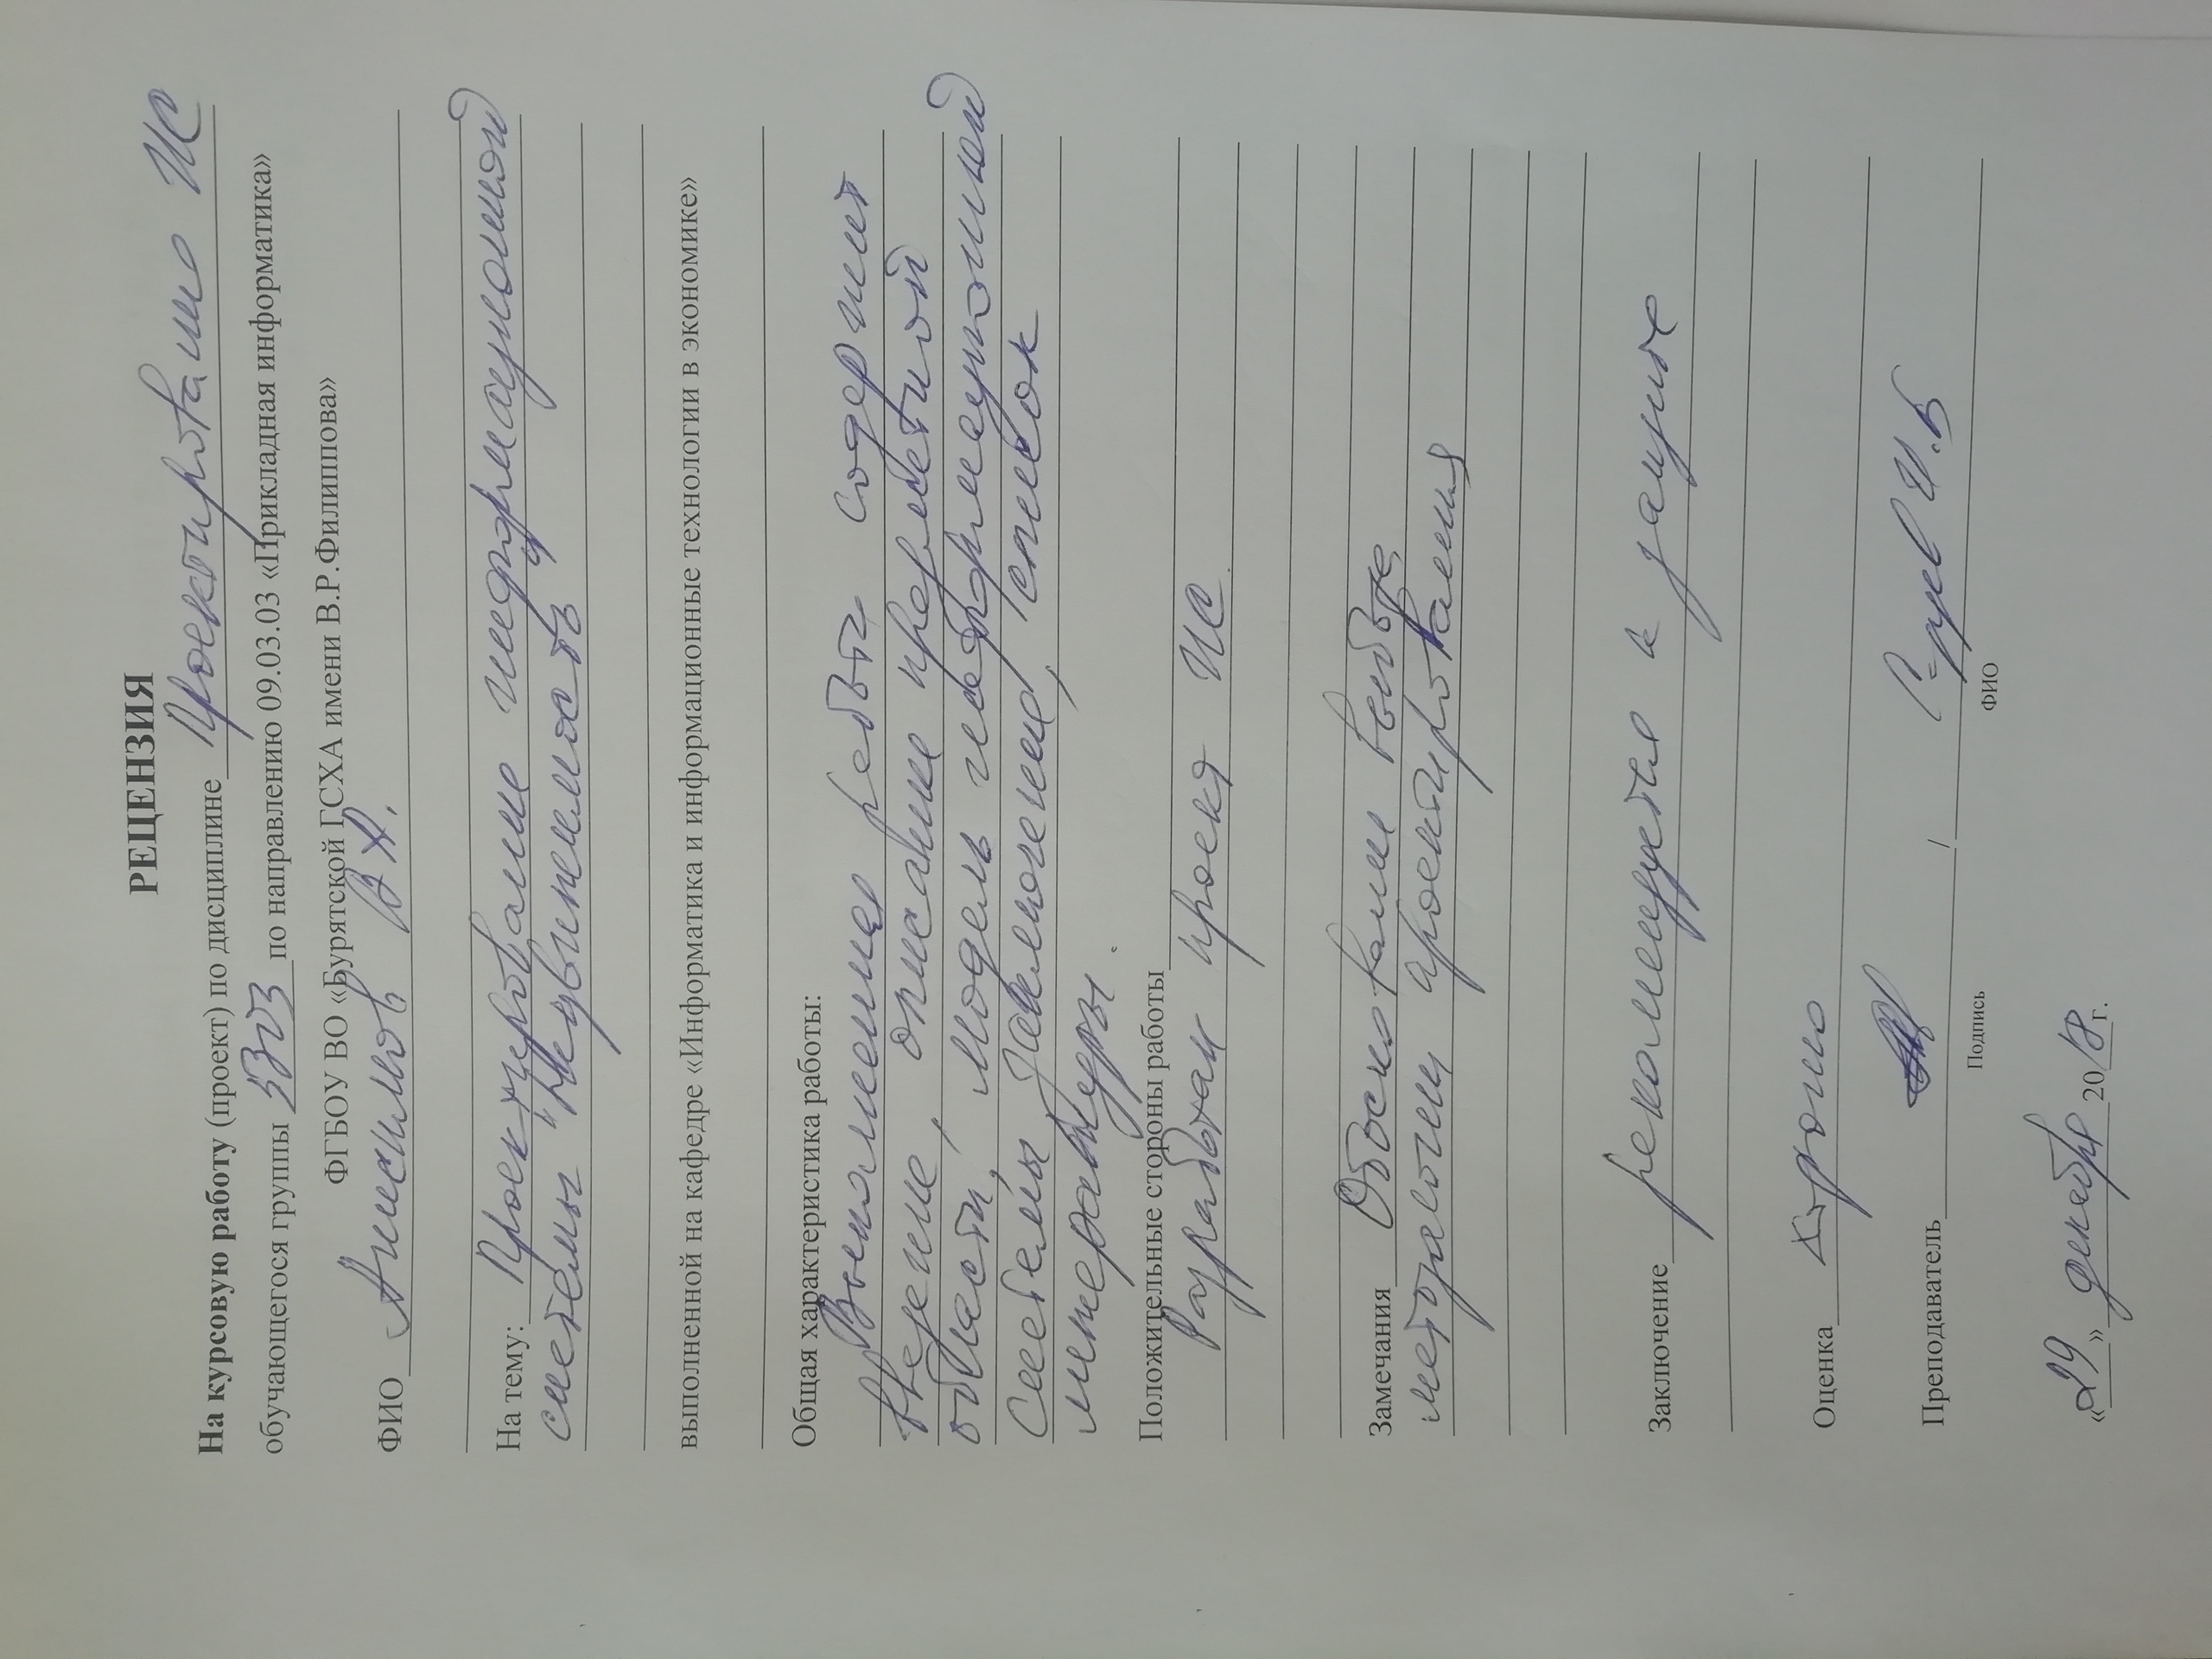 РЕЦЕНЗИЯ
На курсовую работу (проект) по дисциплине Проектирование ИС
обучающегося группы по направлению 09.03.03 «Прикладная информатика»
ФГБОУ ВО «Бурятской ГСХА имени В.Р.Филиппова»
ФИО Анисимов В А.
На тему: Проектирование информационной
системы "Недвижимость"
выполненной на кафедре «Информатика и информационные технологии в экономике»
Общая характеристика работы:
Выполненная работа содержит
введение, описание предметной
области, модель информационной
системы, заключение, список
литературы.
Положительные стороны работы
Разработан проект ИС.
Замечания Обоснование выбора
методологии проектирования
Заключение рекомендуется к защите
Оценка хорошо
Преподаватель / И.Б
Подпись ФИО
«29» декабря 2018г.